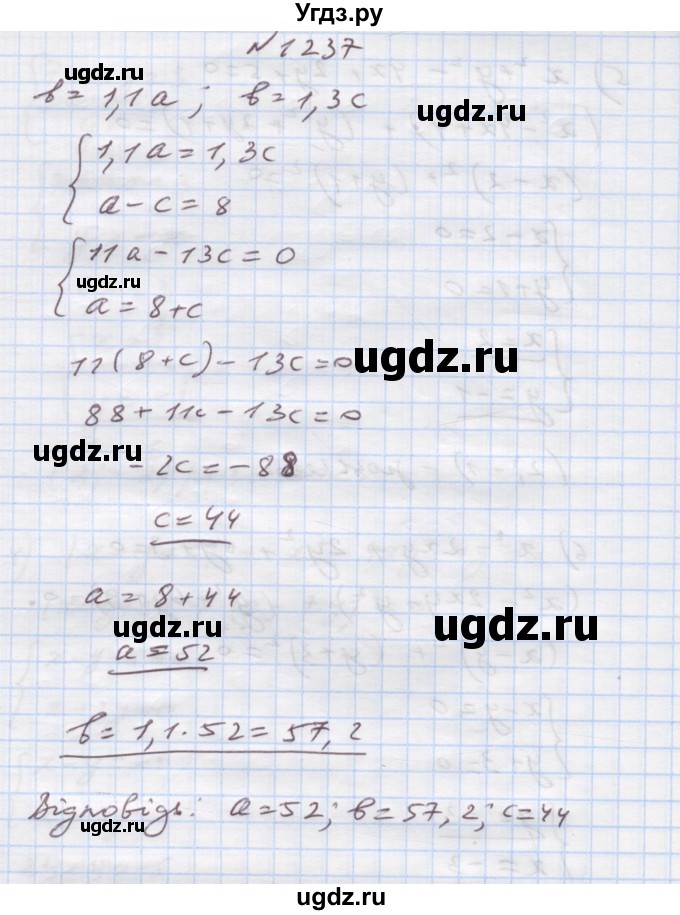 Угдз.ру
№1237
ugdz.ru
b = 1,1a ; b = 1,3c
ugdz.ru
1,1a = 1,3c
ugdz.ru
a - c = 8
11a - 13c = 0
ugdz.ru
a = 8 + c
11(8 + c) - 13c = 0
ugdz.ru
88 + 11c - 13c = 0
ugdz.ru
- 2c = - 88
c = 44
a = 8 + 44
ugdz.ru
ugdz.ru
a = 52
b = 1,1 · 52 = 57,2
Відповідь: a = 52; b = 57,2; c = 44
ugdz.ru
ugdz.ru